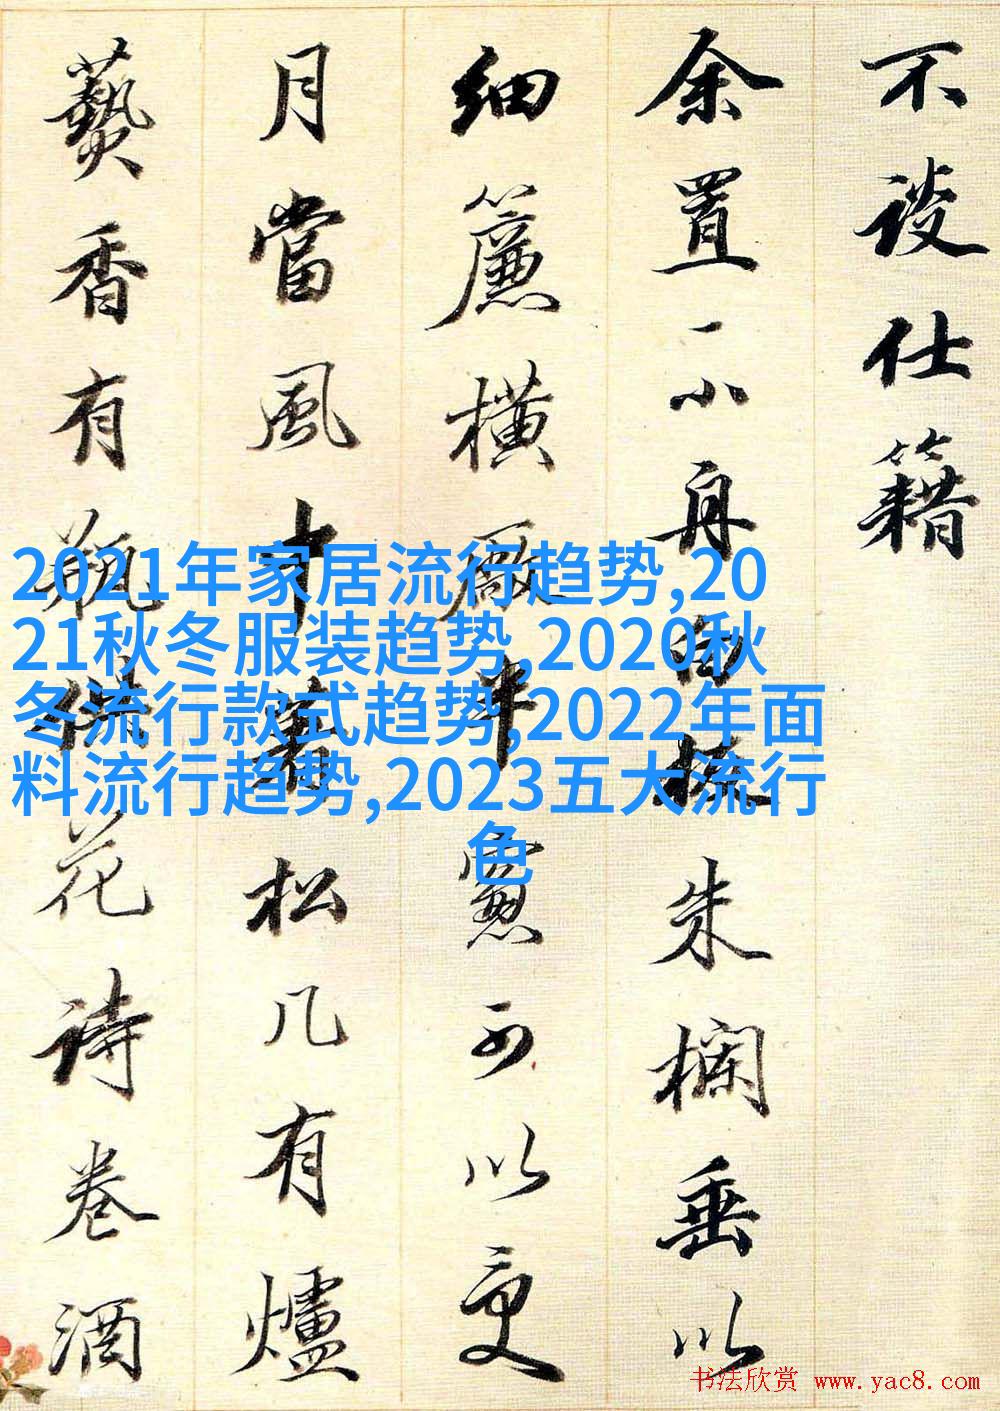 不談仕籍
余置一小舟白板朱欄垂以
細簾橫廠半窻可以更
月當風十
松几有爐
爇香有瓶供花詩卷酒
2021年家居流行趋势,20
21秋冬服装趋势,2020秋
冬流行款式趋势,2022年面
料流行趋势,2023五大流行
色
书法欣赏 www.yac8.com